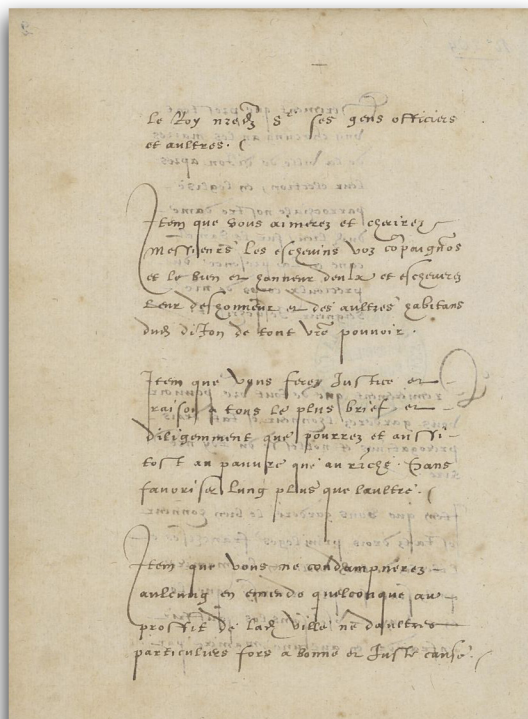 le Roy nredit Sr ses gens officiers
et aultres. (
Item que vous aimerez et cherirez
Messieurs les eschevins voz compaignos
et le bien et honneur deulx et escheverez
Leur deshonneur et des aultres habitans
dud diJon de tout vre pouvoir.
Item que vous ferez Justice et
raison a tous le plus brief et
diligemment que pourrez et aussi
tost au pauvre que au riche. Sans
favoriser lung plus que laultre. (
Item que vous ne condampnerez
aulcung en emende quelconque au
proffit de lad ville ne daultres
particuliers fors a bonne et Juste cause. (